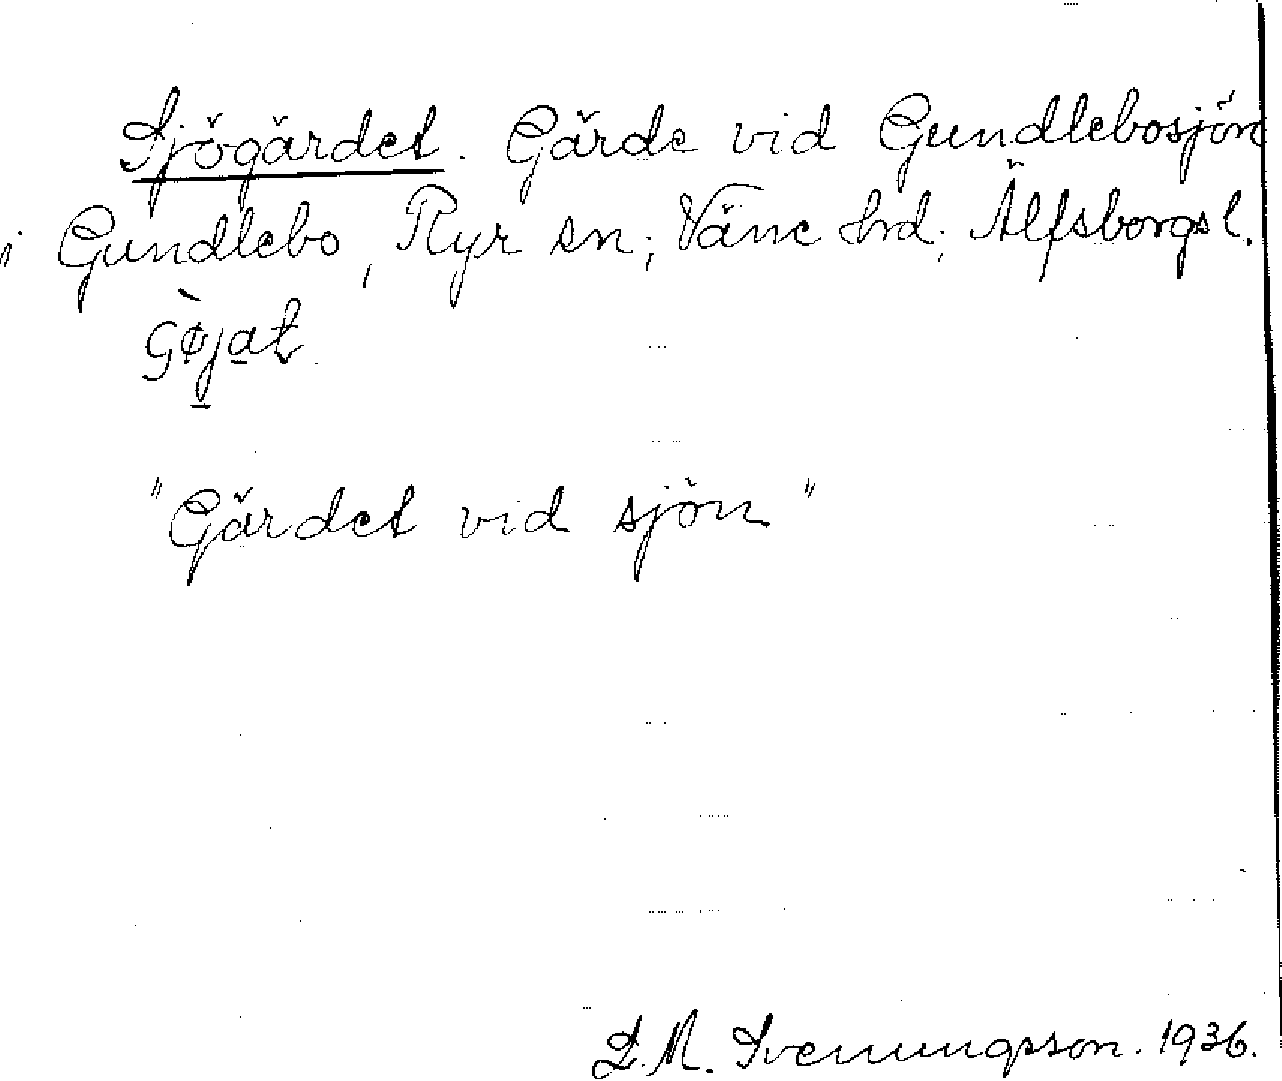 Sjögärdet. Gärde vid Gundlebosjön
i Gundlebo, Ryr sn; Väne hrd; Älfsborgs l.
"Gärdet vid sjön"
D.M. Svenungsson. 1936.